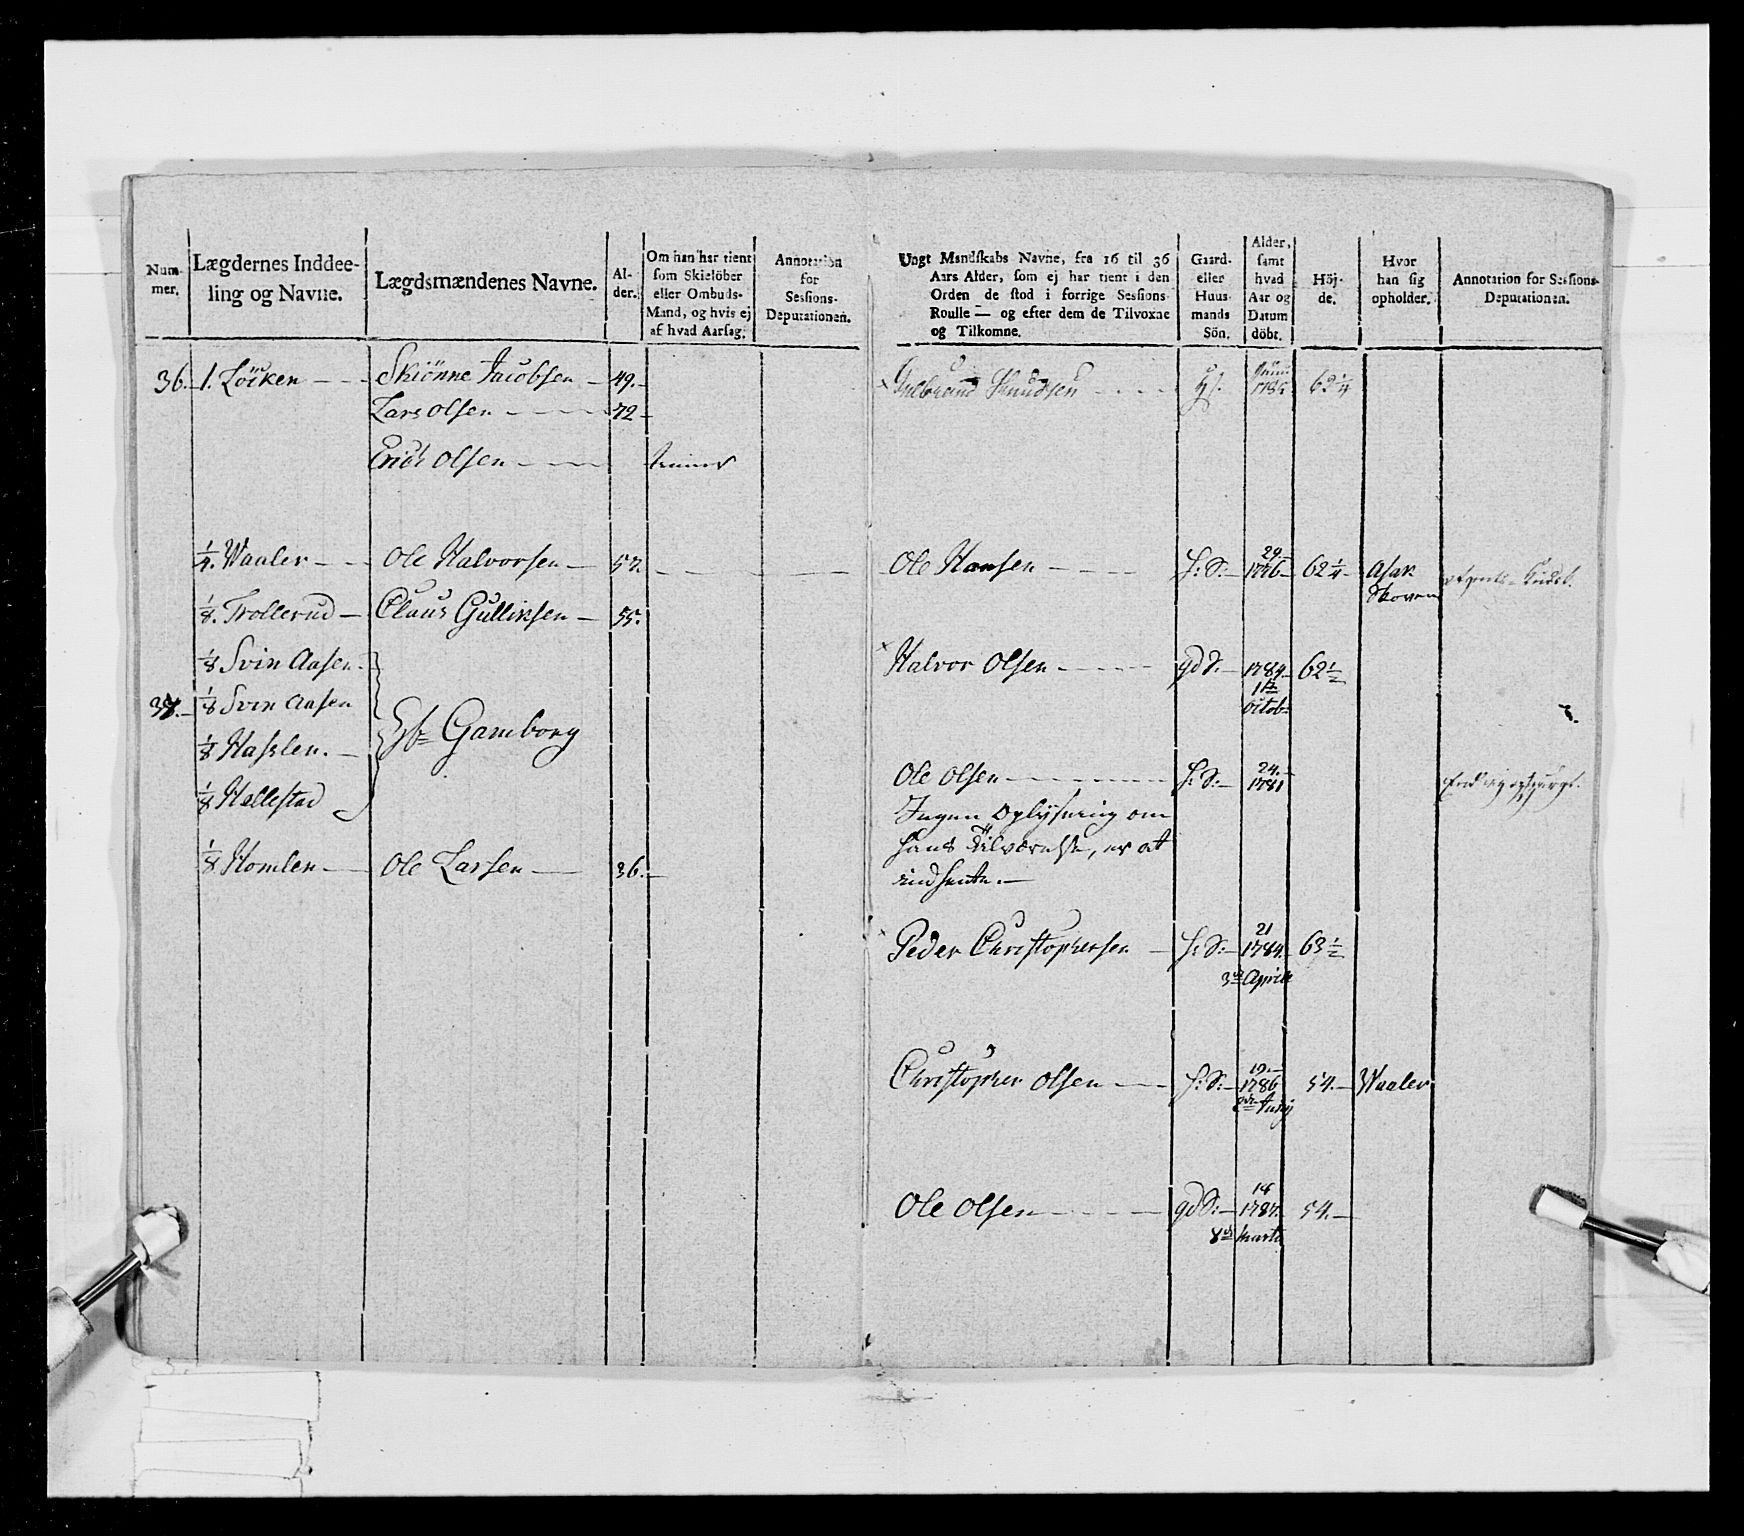 Num-
mer.
Lægdernes Inddee-
ling og Navne.
Lægdsmændenes Navne.
Al-
der.
Om han har tient
som Skieløber
eller Ombuds-
Mand, og hvis ej
af hvad Aarsag.
Annotation
for
Sessions-
Deputationen.
36. 1. Löcken - - Skiönne Jacobsen - 49.
Lars Olsen - - - 72
Erich Olsen - - -
1/4. Waaler - - Ole Halvorsen - 57.
1/8. Trollerud - Claus Gulliksen - 55.
1/8 Svin Aasen.
37. 1/8 Svin Aasen
Gamborg
1/8 Haslen. -
1/8 Hellestad
1/8 Homlen - Ole Larsen - 36.
Ungt Mandskabs Navne, fra 16 til 36
Aars Alder, som ej har tient i den
Orden de stod i forrige Sessions-
Roulle — og efter dem de Tilvoxne
og Tilkomne.
Gaard-
eller
Huus-
mands
Sön.
Alder,
samt
hvad
Aar og
Datum
döbt.
Höj-
de.
Hvor
han sig
opholder.
Annotation for Sessions-
Deputationen.
Knudsen
29.
Ole Hansen - - - H: S: - 1776 - 62 1/4 - Asak
Skoven
x Halvor Olsen - - - gd S: - 1784 - 62 1/2
octob:
24.
Ole Olsen - - - H: S: - 1781
Ingen Oplysning om
hans Tilværelse, er at
indhente. -
21
Peder Christophersen - H: S: - 1784 - 63 1/2
3de April
19.
Christopher Olsen - - H: S: - 1786 54. - Waaler
Ole Olsen - - - gd S: - 1787. 54. -
8de Marts